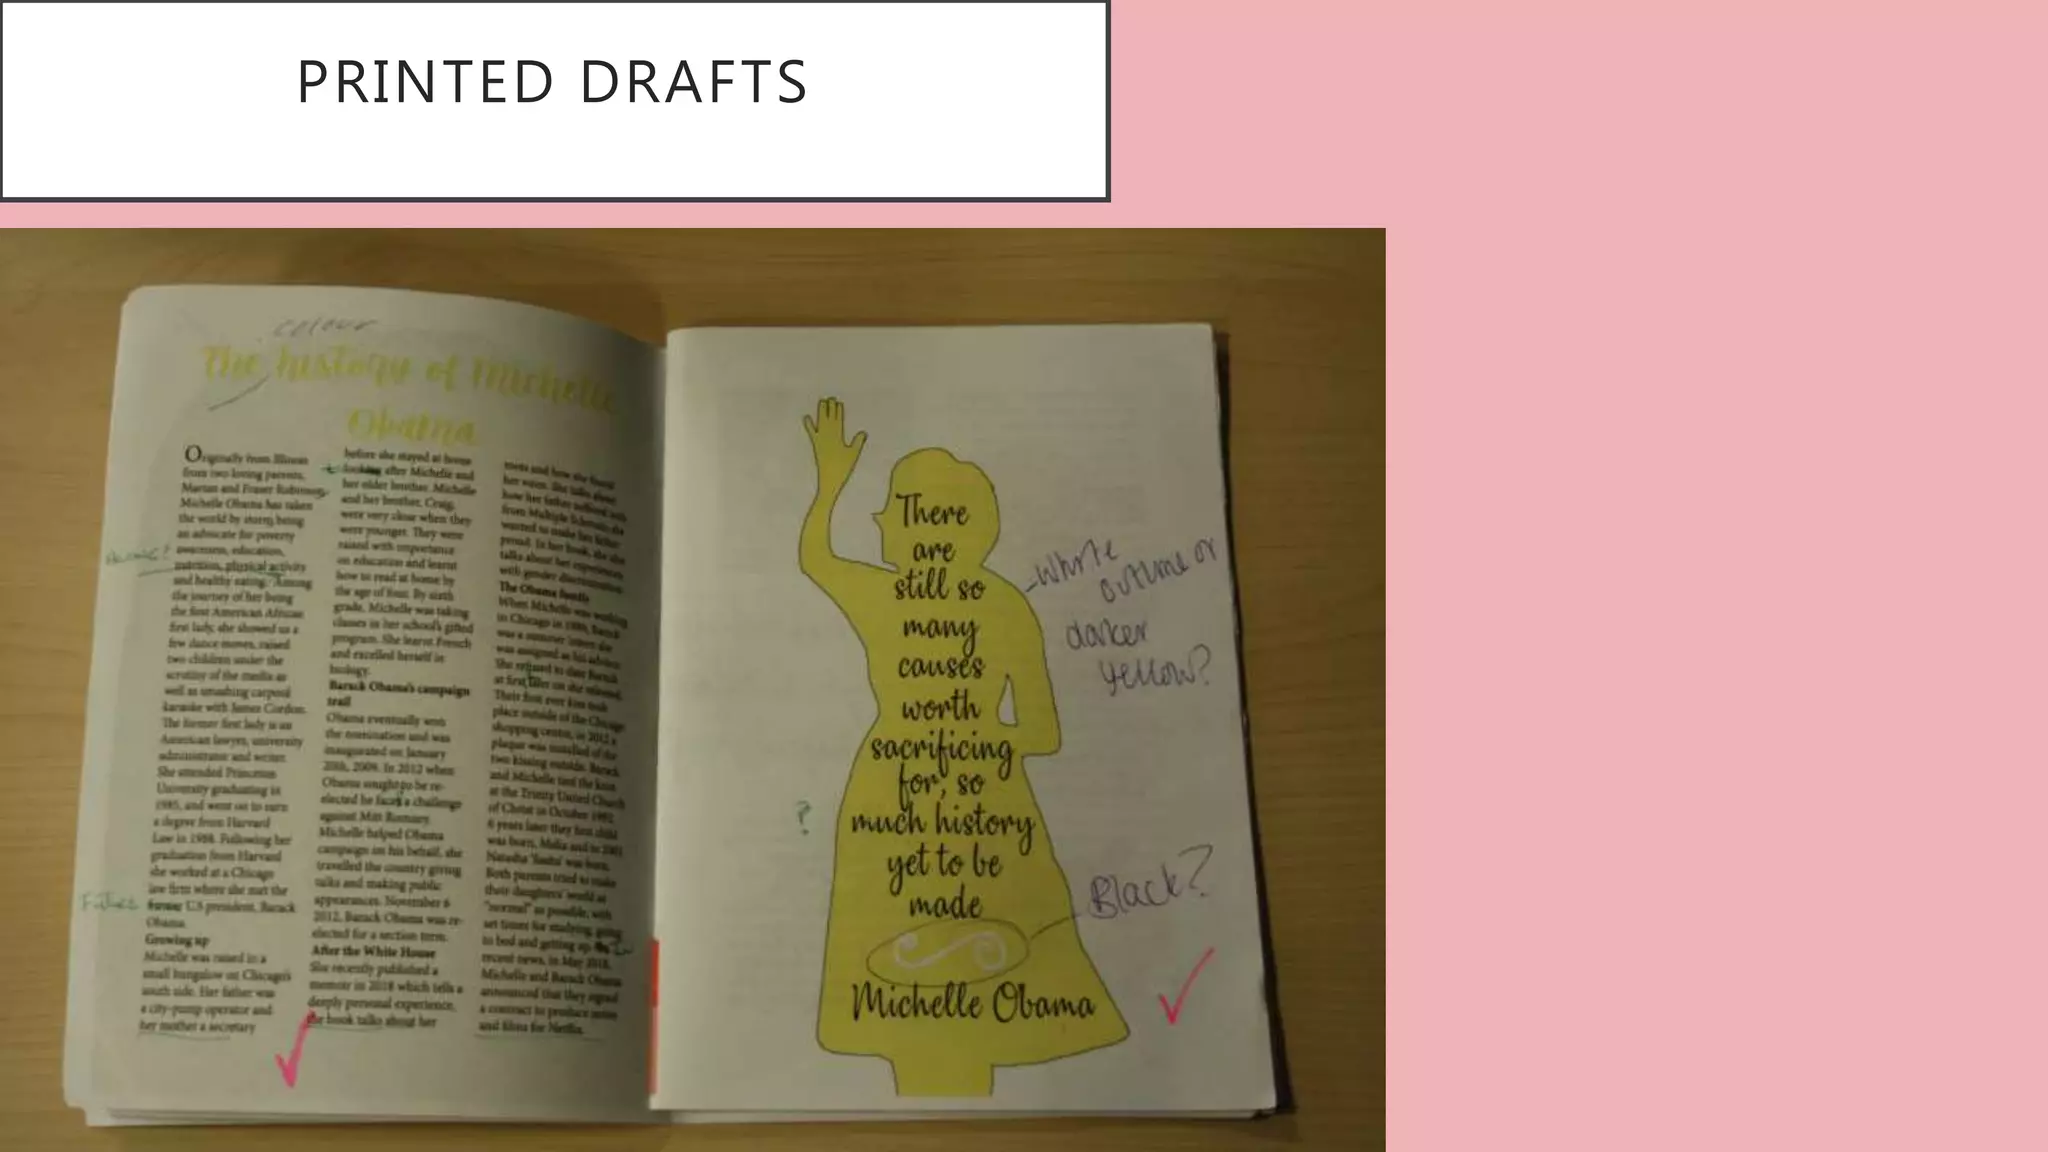 PRINTED DRAFTS
colour
The history of Michelle
Obama
Originally from Illinois
from two loving parents,
Marian and Fraser Robinson,
Michelle Obama has taken
the world by storm, being
an advocate for poverty
awareness, education,
nutrition, physical activity
and healthy eating. Among
the journey of her being
the first American African
first lady, she showed us a
few dance moves, raised
two children under the
scrutiny of the media as
well as smashing carpool
karaoke with James Cordon.
The former first lady is an
American lawyer, university
administrator and writer.
She attended Princeton
University graduating in
1985, and went on to earn
a degree from Harvard
Law in 1988. Following her
graduation from Harvard
she worked at a Chicago
law firm where she met the
Future former U.S president, Barack
Obama.
Growing up
Michelle was raised in a
small bungalow on Chicago's
south side. Her father was
a city-pump operator and
her mother a secretary
before she stayed at home
looking after Michelle and
her older brother. Michelle
and her brother, Craig,
were very close when they
were younger. They were
raised with importance
on education and learnt
how to read at home by
the age of four. By sixth
grade, Michelle was taking
classes in her school's gifted
program. She learnt French
and excelled herself in
biology.
Barack Obama's campaign
trail
Obama eventually won
the nomination and was
inaugurated on January
20th, 2009. In 2012 when
Obama sought to be re-
elected he faces a challenge
against Mitt Romney.
Michelle helped Obama
campaign on his behalf, she
travelled the country giving
talks and making public
appearances. November 6
2012, Barack Obama was re-
elected for a section term.
After the White House
She recently published a
memoir in 2018 which tells a
deeply personal experience,
the book talks about her
roots and how she found
her voice. She talks about
how her father suffered with
from Multiple Sclerosis she
wanted to make her father
proud. In her book, she she
talks about her experiences
with gender discrimination.
The Obama family
When Michelle was working
in Chicago in 1989, Barack
was a summer intern she
was assigned as his advisor.
She refused to date Barack
at first later on she relented.
Their first ever kiss took
place outside of the Chicago
shopping centre, in 2012 a
plaque was installed of the
two kissing outside. Barack
and Michelle tied the knot
at the Trinity United Church
of Christ in October 1992.
6 years later they first child
was born, Malia and in 2001
Natasha 'Sasha' was born.
Both parents tried to make
their daughters' world as
"normal" as possible, with
set times for studying, going
to bed and getting up.
recent news, in May 2018,
Michelle and Barack Obama
announced that they signed
a contract to produce series
and films for Netflix.
There
are
still so
many
causes
worth
sacrificing
for, so
much history
yet to be
made
Michelle Obama
white
outline or
darker
yellow?
?
Black?